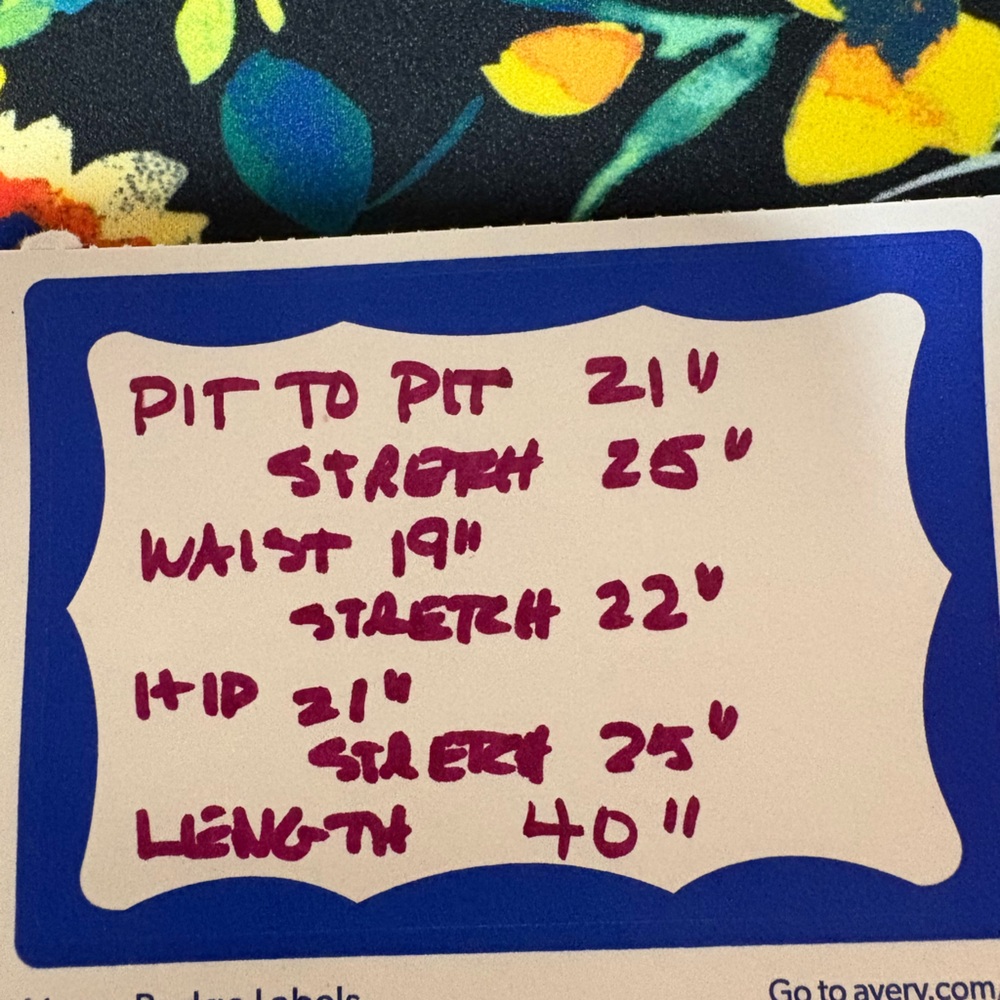 PIT TO PIT 21"
STRETCH 25"
WAIST 19"
STRETCH 22"
HIP 21"
STRETCH 25"
LENGTH 40"
Badge Labels
Go to avery.com